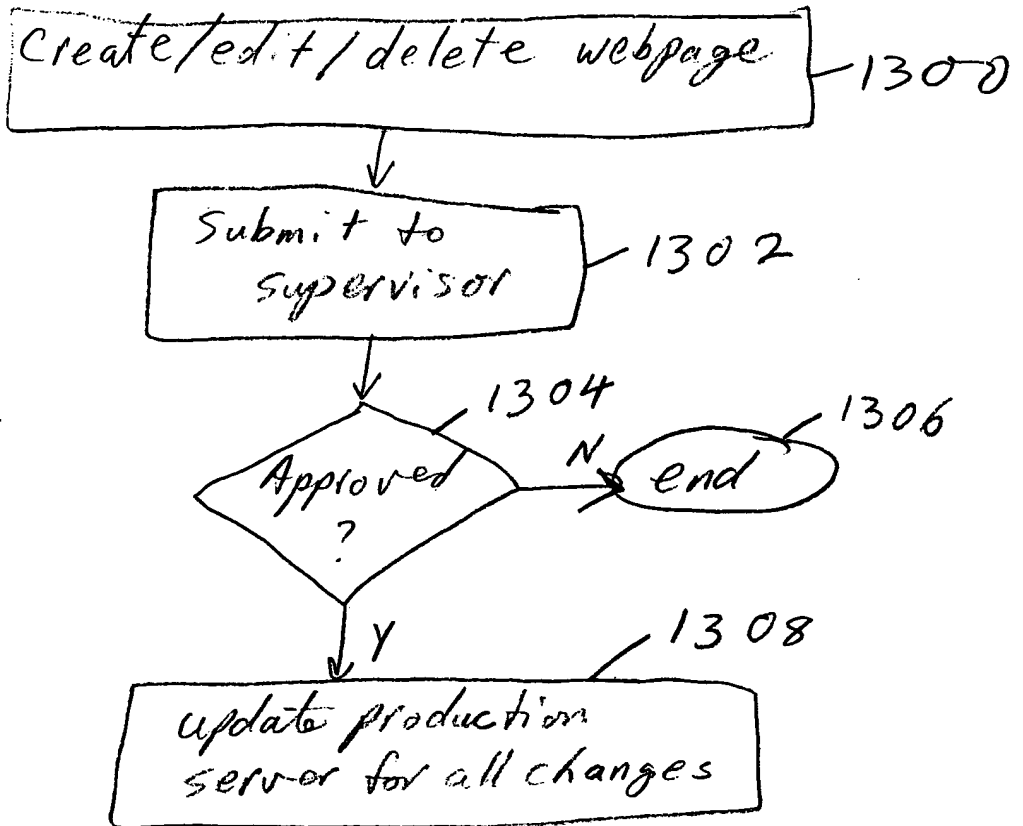 Create/edit/delete webpage
1300
Submit to
supervisor
1302
1304
Approved
?
N
1306
end
Y
1308
update production
server for all changes